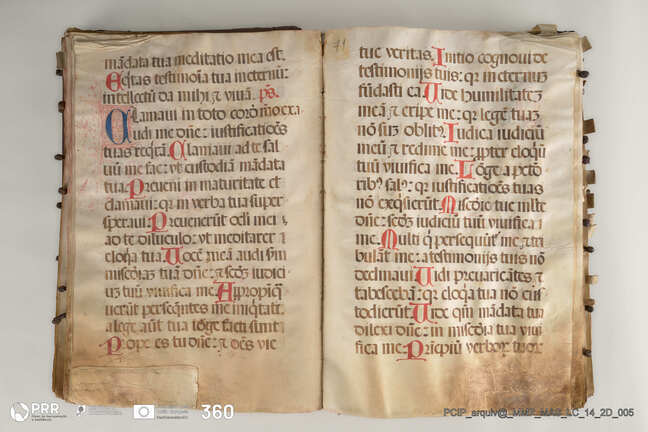 mādata tua meditatio mea est.
Eqtas testimoīa tua ī eternū:
intellectū da mihi ⁊ viuā. ps.
Clamaui in toto cor̄ mō exa
udi me dn̄e: iustificatiōes
tuas reqrā. Clamaui ad te sal
uū me fac: vt custodiā mādata
tua. Preueni in maturitate et
clamaui: qr in verba tua super
speraui. Preuenerūt ocli mei
ad te diluculo: vt meditarer
eloqa tua. Uocē meā audi scdm
miscdiaz tuā dn̄e: ⁊ scdz iudici
uz tuū viuifica me. Appropiq
uerūt perseqntes me iniqtati:
a lege aūt tua lōge facti sunt.
Prope es tu dn̄e: ⁊ oēs vie
71
tue veritas. Initio cognoui de
testimonijs tuis: qr in eternuz
fūdasti ea. Uide humilitatez
meā ⁊ eripe me: qr legē tuaz
nō suz oblitꝰ. Iudica iudiciū
meū ⁊ redime me: ꝓpter eloqū
tuū viuifica me. Lōge a pctō
ribꝰ salꝰ: qr iustificatiōes tuas
nō exqsierūt. Miscdie tue mlte
dn̄e: scdz iudiciū tuū viuifica
me. Multi q persequūt me ⁊ tri
bulāt me: a testimonijs tuis nō
declinaui. Uidi preuaricātes ⁊
tabescebā: qr eloqa tua nō cus
todierūt. Uide qm̄ mādata tua
dilexi dn̄e: in miscdia tua viui
fica me. Prīcipiū verborꝝ tuoꝝ
PRR
360